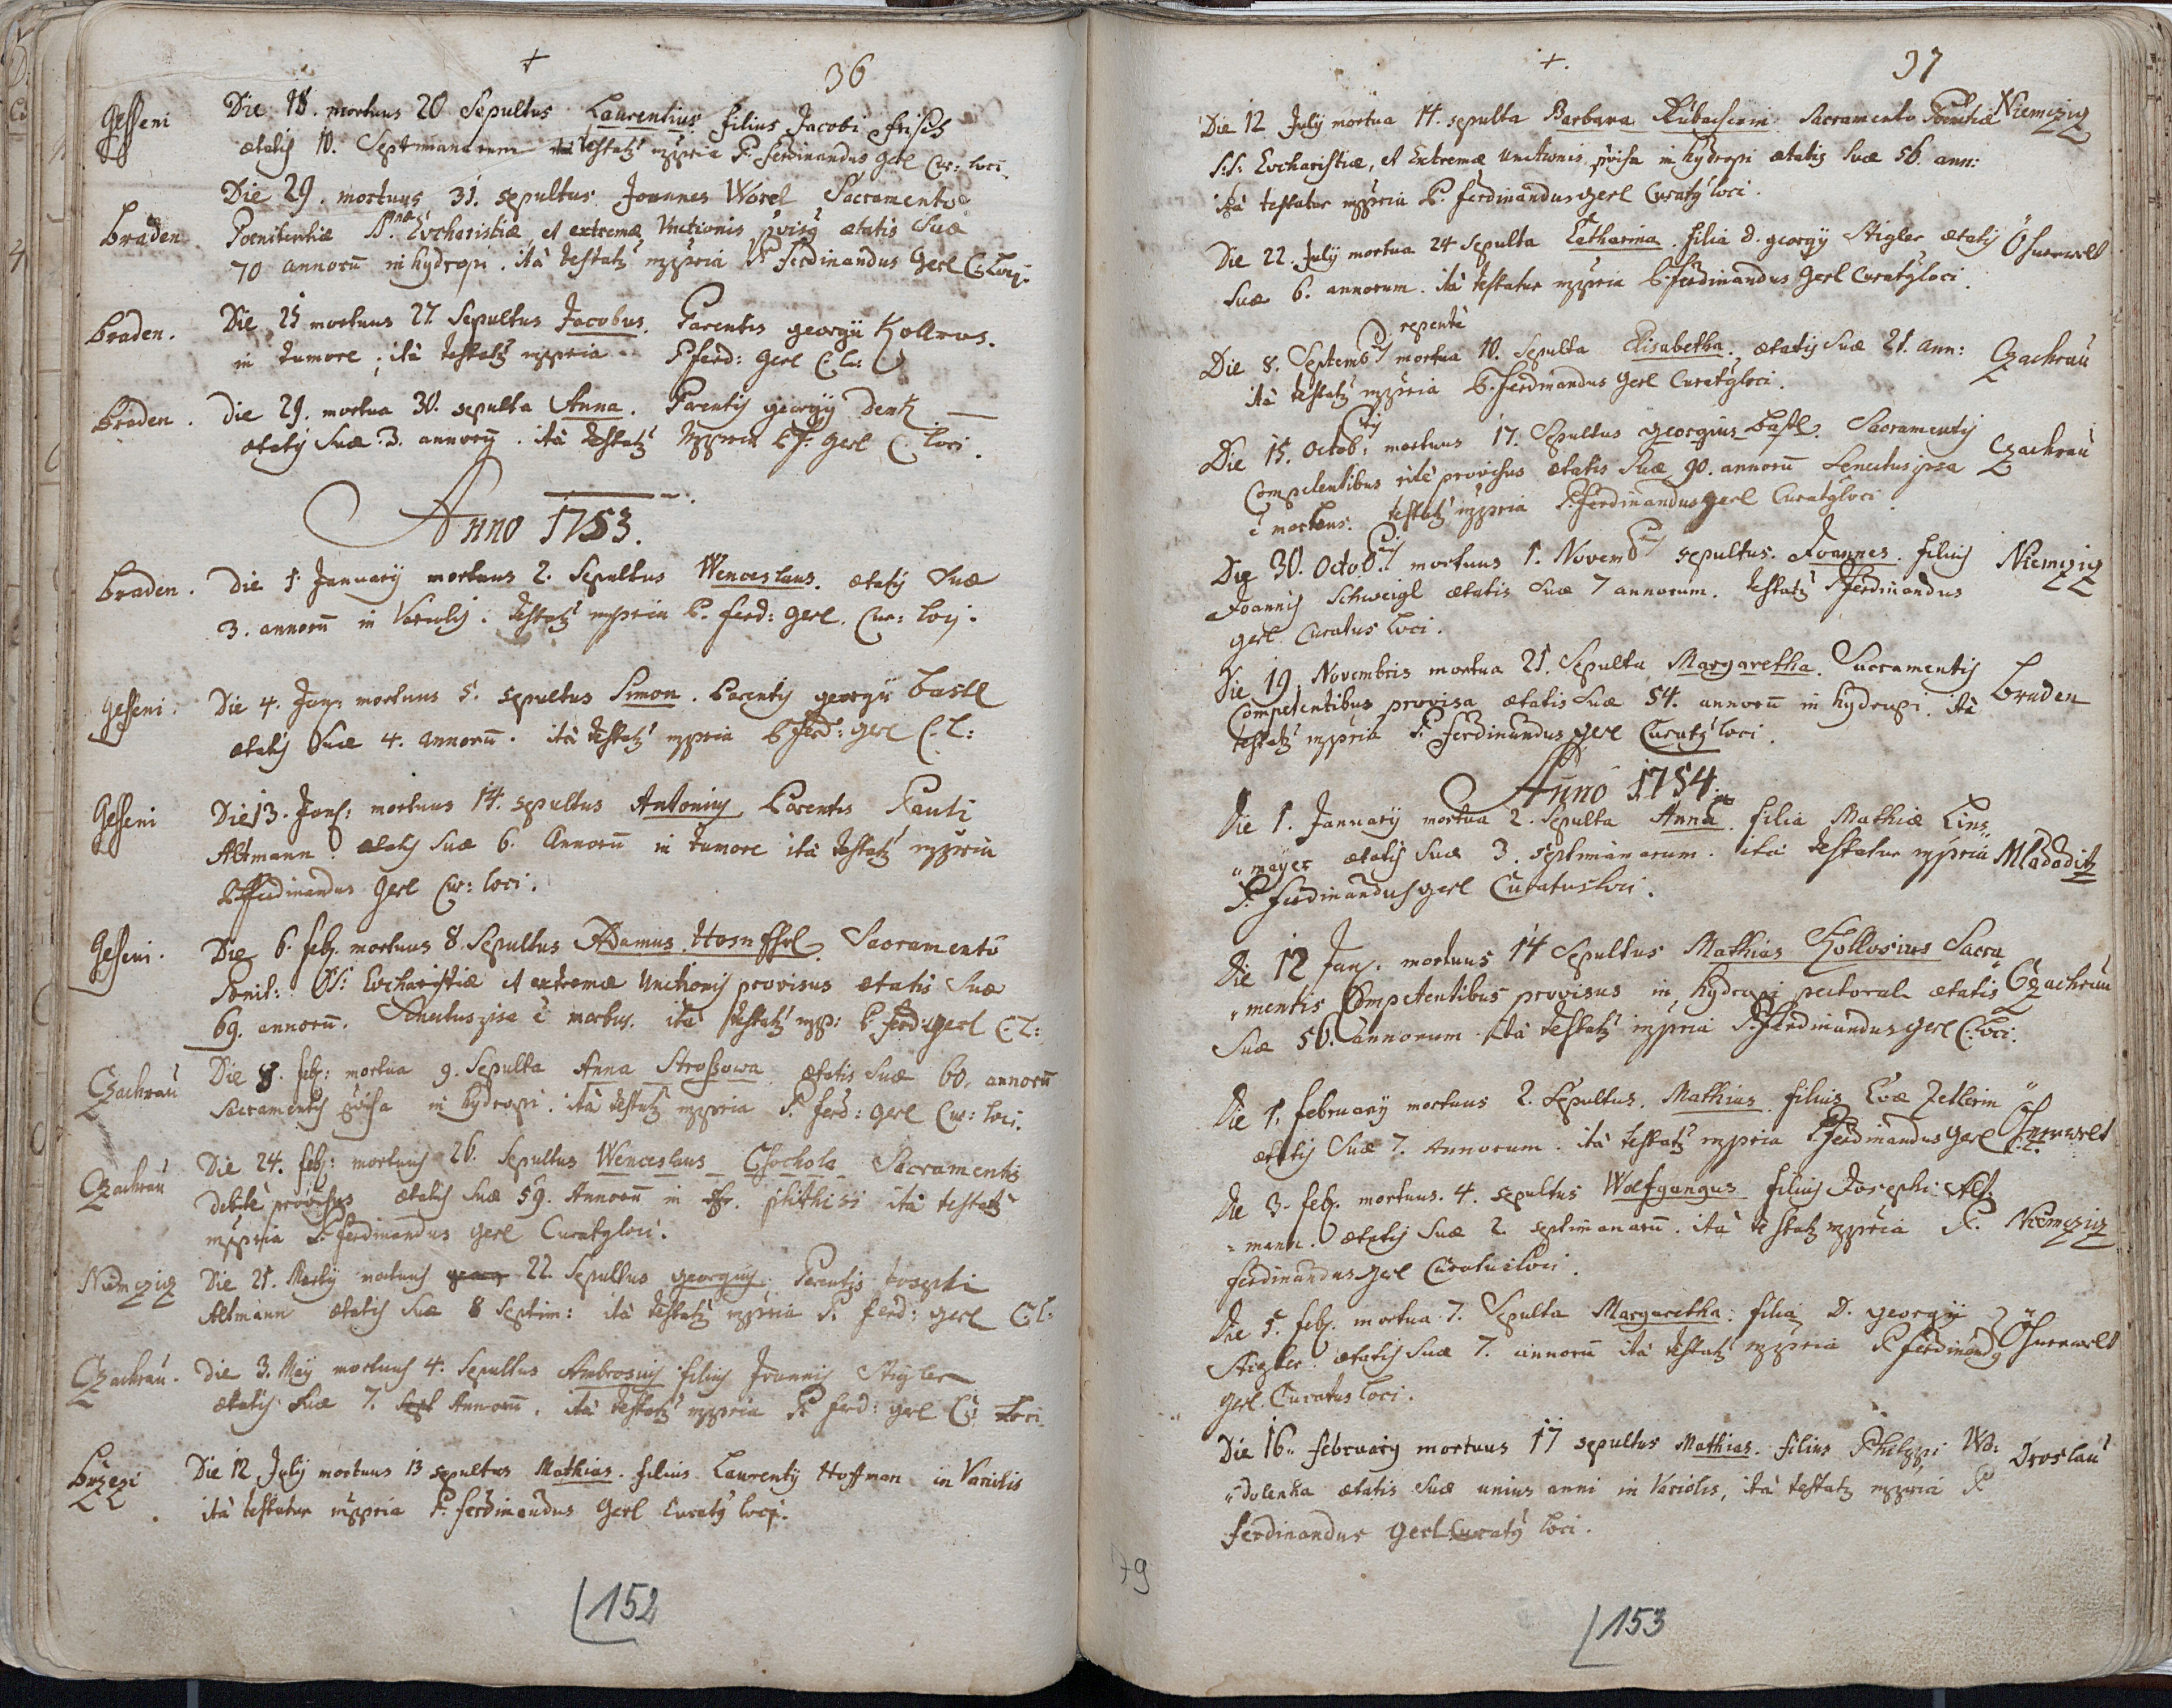 + 36
Gesseni Die 18. mortuus 20 Sepultus Laurentius filius Jacobi Frisch
ætatis 10. Septimanarum testatꝰ mppria P. Ferdinandus Gerl Cur: loci
Die 29. mortuus 31. sepultus Joannes Worel Sacramento
Braden Poenitentiæ Eucharistiæ, et extremæ Unctionis ætatis Suæ
70 annorū in hydropi. ità testatꝰ mppria P Ferdinandus Gerl C: loci.
Braden. Die 25 mortuus 27 Sepultus Jacobus. Parentis georgii Kollros.
in tumore; ità testatꝰ mppria P ferd: Gerl C: L:
Braden. die 29. mortua 30. sepulta Anna. Parentis georgÿ Denk
ætatis Suæ 3. annorū. ità testatꝰ mppria P F: Gerl C: loci.
Anno 1753.
Braden. Die 1. January mortuus 2. Sepultus Wenceslaus. ætatis Suæ
3. annorū in Variolis. testatꝰ mppria P. Ferd: Gerl. Cur: loci.
Gesseni. Die 4. Jan: mortuus 5. sepultus Simon. Parentis georgii Bastl
ætatis Suæ 4. annorū. ità testatꝰ mppria P ferd: Gerl C: L:
Gesseni Die 13. Jan: mortuus 14. sepultus Antonius Parentis Pauli
Altmann. ætatis Suæ 6. Annorū in tumore ità testatꝰ mppria
P Ferdinandus Gerl Cur: loci.
Gesseni. Die 6. feb. mortuus 8. Sepultus Adamus Sacramento
Poenit: SS: Eucharistiæ et extremæ Unctionis provisus ætatis Suæ
69. annorū. Senectus ipsa ē morbus. ità testatꝰ mpp: P. Ferd: Gerl C: L:
Czachrau Die 8. feb: mortua 9. Sepulta Anna Strossowa ætatis Suæ 60. annorū
Sacramentis pvisa in hydropi. ità testatꝰ mppria P. ferd: Gerl Cur: loci.
Czachrau Die 24. feb: mortuus 26. Sepultus Wenceslaus Chochola Sacramentis
debitè provisus ætatis Suæ 59. Annorū in phthisi ità testatꝰ
mppria P. Ferdinandus Gerl Curatꝰ loci.
Niemczig Die 21. Marty mortuus 22. Sepultus georgius. Parentis Josephi
Altmann ætatis Suæ 8 septim: ità testatꝰ mppria P. ferd: Gerl C: L:
Czachrau. Die 3. May mortuus 4. Sepultus Ambrosius filius Joannis Stigler
ætatis Suæ 7. Annorū. ità testatꝰ mppria P. ferd: Gerl C: loci
Brzezi Die 12 July mortuus 13 sepultus Mathias. filius Laurenty Hoffman in Variolis
ità testatur mppria P. Ferdinandus Gerl Curatꝰ loci.
152
+. 37
Die 12 July mortua 14. sepulta Barbara Sacramento Poenitiæ Niemczig
S:S: Eucharistiæ, et Extremæ Unctionis pvisa in hydropi ætatis Suæ 56. ann:
ità testatur mppria P. Ferdinandus Gerl Curatꝰ loci.
Die 22. July mortua 24 Sepulta Catharina. filia D. georgÿ Stigler ætatis
Suæ 6. annorum. ità testatur mppria P. Ferdinandus Gerl Curatꝰ loci.
repentè
Die 8. Septemb mortua 10. Sepulta Elisabetha. ætatis Suæ 21. ann: Czachrau
ità testatꝰ mppria P. Ferdinandus Gerl Curatꝰ loci.
Die 15. Octob: mortuus 17. Sepultus Georgius Bastl. Sacramentis Czachrau
Competentibus ritè provisus ætatis Suæ 90. annorū Senectus ipsa
ē morbus. testatꝰ mppria P. Ferdinandus Gerl Curatꝰ loci
Die 30. Octob mortuus 1. Novemb sepultus. Joannes. filius Niemczig
Joannis Schweigl ætatis Suæ 7 annorum. testatꝰ P Ferdinandus
Gerl Curatus loci.
Die 19 Novembris mortua 21. Sepulta Margaretha. Sacramentis Braden
Competentibus provisa ætatis Suæ 54. annorū in hydropi. ità
testatꝰ mppria P. Ferdinandus Gerl Curatꝰ loci.
Anno 1754.
Die 1. January mortua 2. Sepulta Anna. filia Mathiæ Lins
mayer ætatis Suæ 3. septimanarum. ità testatur mppria Mladoditz
P. Ferdinandus Gerl Curatus loci.
Die 12 Jan. mortuus 14 Sepultus Mathias Sacra
mentis Competentibus provisus in hydropi pectorali ætatis Czachrau
Suæ 50. annorum. ità testatꝰ mppria P. Ferdinandus Gerl C: loci.
Die 1. february mortuus 2. Sepultus. Mathias. filius Evæ Zetlerin
ætatis Suæ 7. Annorum. ità testatꝰ mppria P Ferdinandus Gerl
Die 3. feb. mortuus. 4. sepultus Wolfgangus filius Josephi Alt
mann. ætatis Suæ 2. septimanarū. ità testatꝰ mppria P. Niemczig
Ferdinandus Gerl Curatus loci.
Die 5. feb. mortua 7. Sepulta Margaretha. filia D. georgii
Stigler. ætatis Suæ 7. annorū ità testatꝰ mppria P Ferdinandꝰ
Gerl. Curatus loci.
Die 16. february mortuus 17 sepultus Mathias. filius Philippi Wo:
dolenka ætatis Suæ unius anni in Variolis, ità testatꝰ mppria P Droslau
Ferdinandus Gerl Curatꝰ loci.
79
153